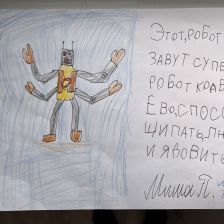 ЭТОТ, РОБОТ
ЗАВУТ СУПЕ
РОБОТ КРАБ
ЕВО, СПОС
ЩИПАТЬ, Л
И ЯДОВИТЕ
Миша П.